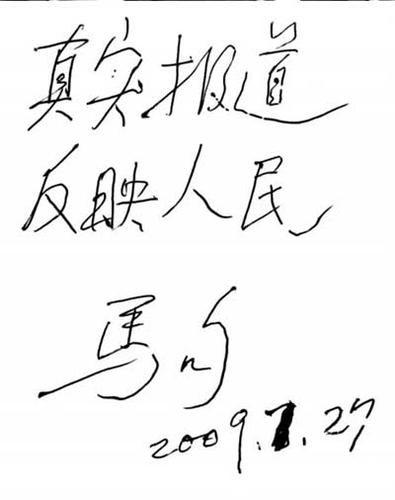 真实报道
反映人民
馬
2009.7.27